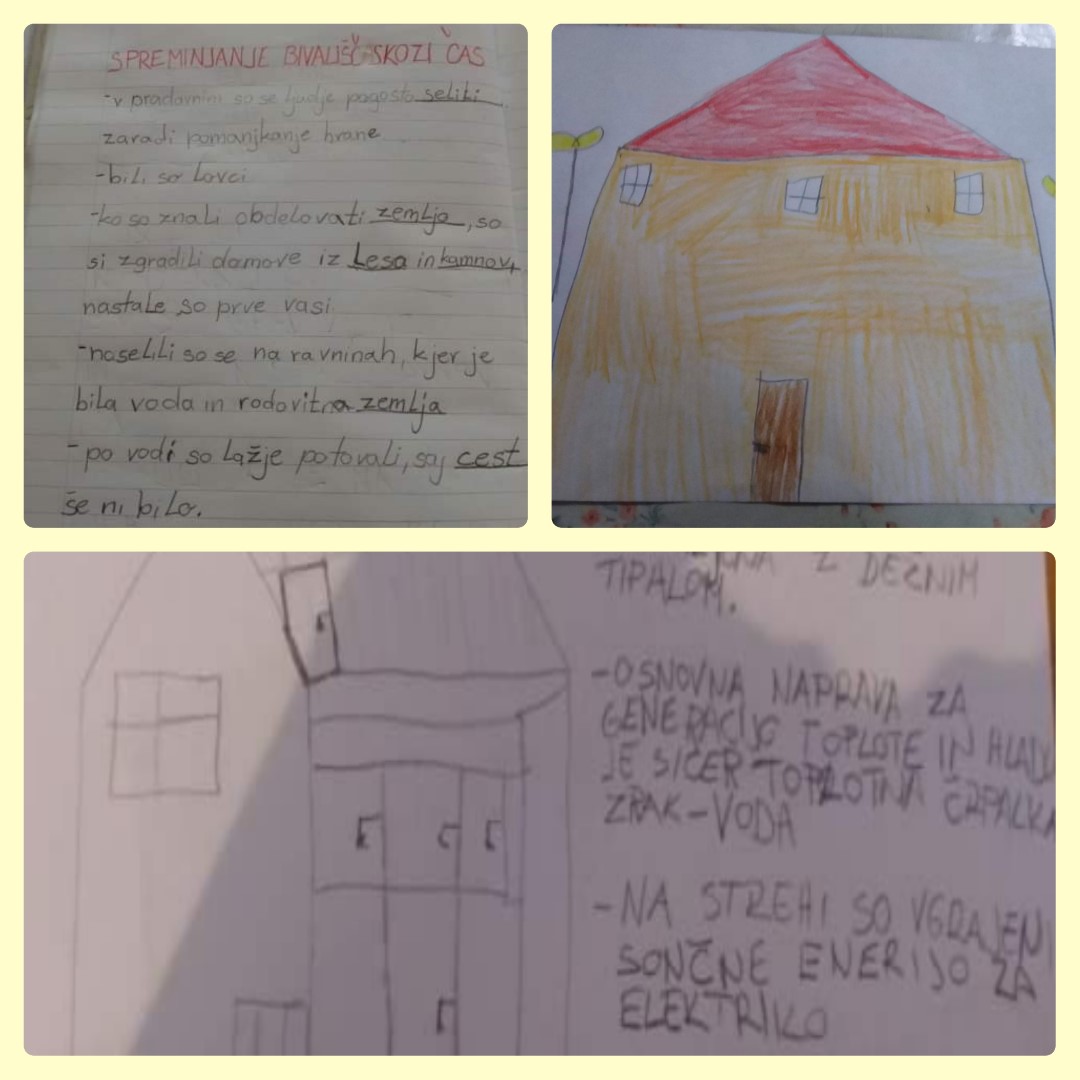 SPREMINJANJE BIVALIŠČ SKOZI ČAS
-v pradavnini so se ljudje pogosto selili
zaradi pomanjkanje hrane
-bili so lovci
-ko so znali obdelovati zemljo, so
si zgradili domove iz lesa in kamnov,
nastale so prve vasi
-naselili so se na ravninah, kjer je
bila voda in rodovitna zemlja
-po vodi so lažje potovali, saj cest
še ni bilo.
Z DEŽNIM
TIPALOM.
-OSNOVNA NAPRAVA ZA
GENERACIJO TOPLOTE IN HLADU
JE SICER TOPLOTNA ČRPALKA
ZRAK-VODA
-NA STREHI SO VGRAJEN
SONČNE ENERIJO ZA
ELEKTRIKO